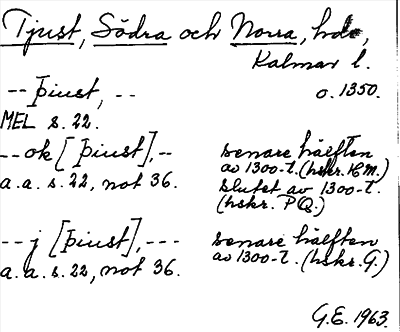 Tjust, Södra och Norra, hde,
Kalmar l.
-- þiust, -- o. 1350.
MEL s. 22.
-- ok [þiust], -- senare hälften
a.a. s. 22, not 36. av 1300-t. (hskr. H M.)
slutet av 1300-t.
(hskr. P Q.)
-- j [þiust], --- senare hälften
a.a. s. 22, not 36. av 1300-t. (hskr. G.)
G.E. 1963.